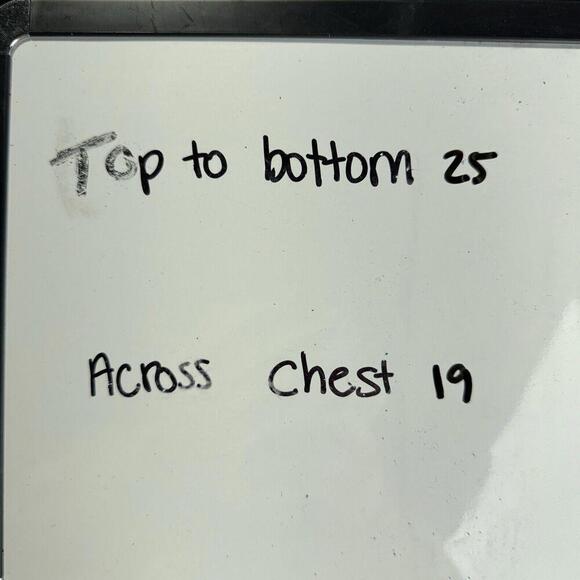 Top to bottom 25
Across chest 19